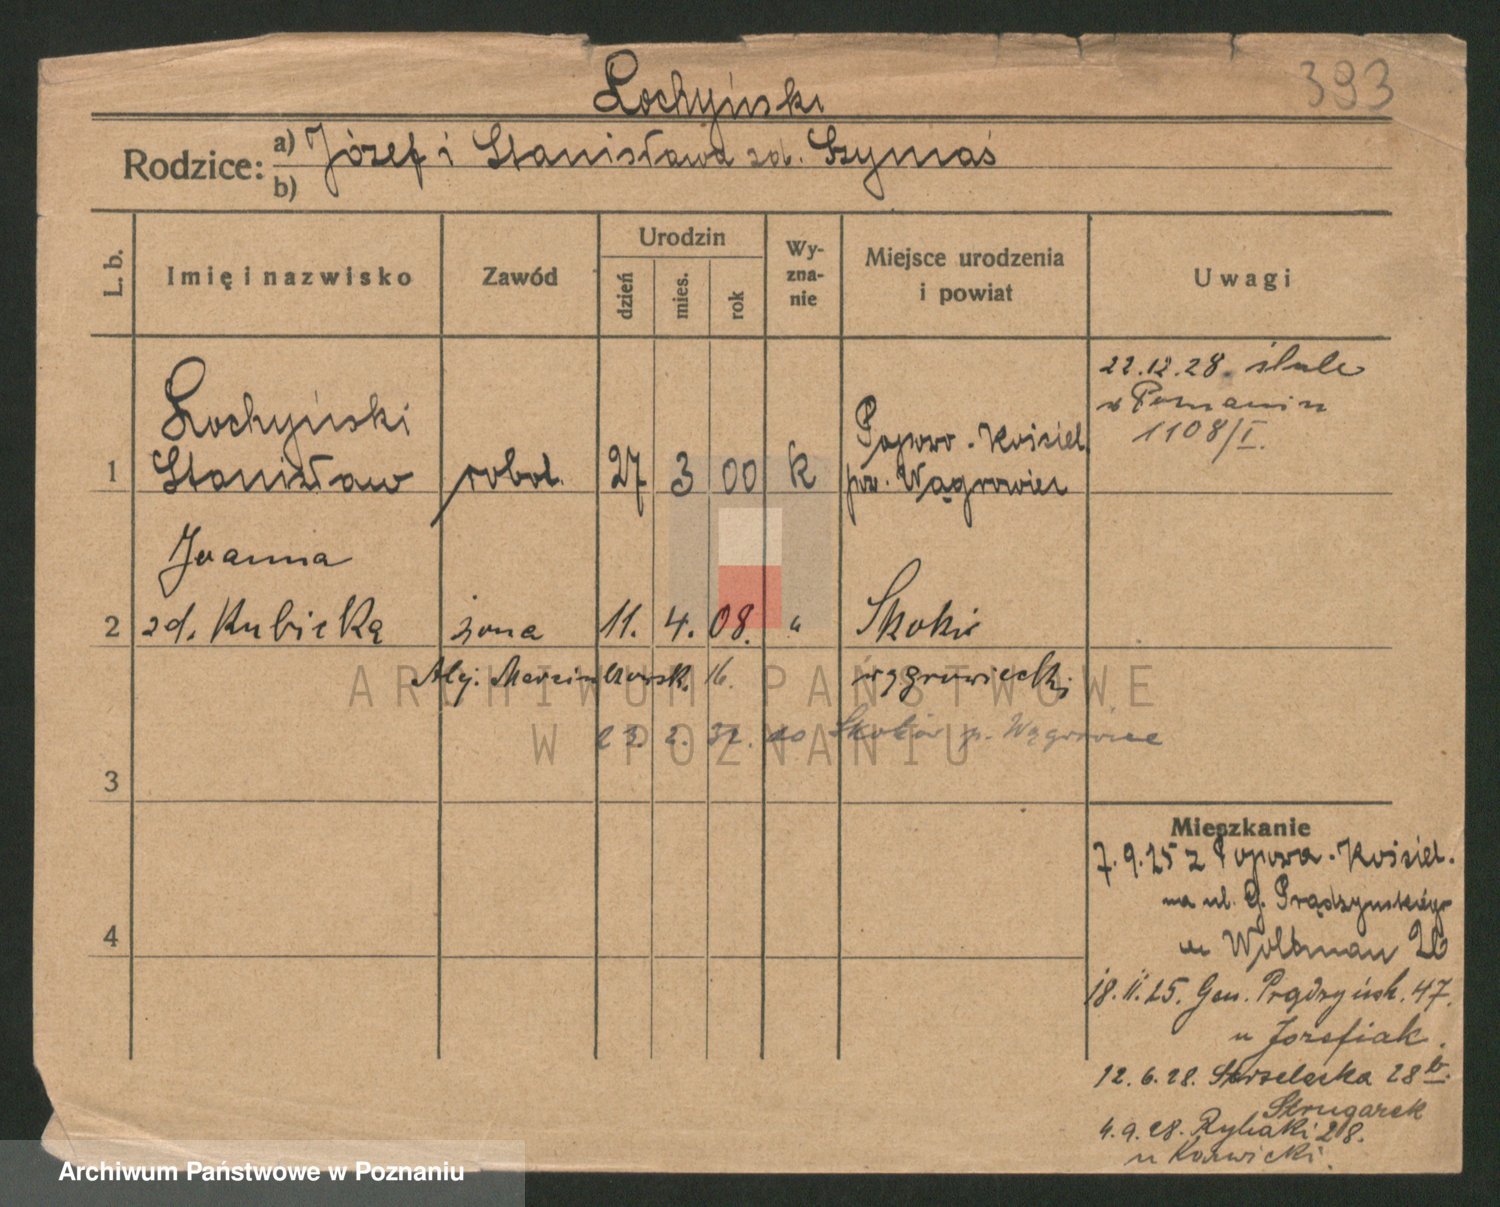 393
Łochyński
Rodzice: a) Józef i Stanisława zd. Szymaś
b)
L. b. Imię i nazwisko Zawód Urodzin dzień mies. rok Wy-zna-nie Miejsce urodzenia i powiat Uwagi
22.12.28. ślub
w Poznaniu
1108/I.
Łochyński Popowo-Kościel.
1 Stanisław robot. 27 3 00 k pow. Wągrowiec
Joanna
2 zd. Kubicka żona 11. 4. 08. " Skoki
Alej. Marcinkowsk. 16. wągrowiecki
23. 2. 32. do Skoków p. Wągrowiec
3
Mieszkanie
7.9.25 z Popowa-Kościel.
na ul. G. Prądzyńskiego
u Woltman 26
4
18.11.25. Gen. Prądzyńsk. 47.
u Józefiak.
12.6.28. Strzelecka 28 b.
Strugarek
4.9.28. Rybaki 28.
u Karwicki.
ARCHIWUM PAŃSTWOWE
W POZNANIU
Archiwum Państwowe w Poznaniu